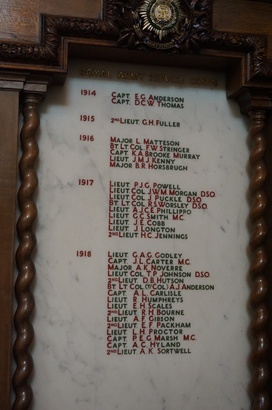 ROYAL ARMY SERVICE CORPS
1914 CAPT. E.G. ANDERSON
CAPT. D.C.W. THOMAS
1915 2ND LIEUT. G.H. FULLER
1916 MAJOR L. MATTESON
BT LT COL F.W. STRINGER
CAPT. K.A. BROOKE MURRAY
LIEUT J.M.J. KENNY
MAJOR B.R. HORSBRUGH
1917 LIEUT P.J.G. POWELL
LIEUT COL. J.W.M. MORGAN D.S.O.
LIEUT COL. J. PUCKLE D.S.O.
BT LT COL R.S. WORSLEY D.S.O.
LIEUT A.J.C.E. PHILLIPPO
LIEUT G.C. SMITH M.C.
LIEUT J.E. COBB
LIEUT J. LONGTON
2ND LIEUT H.C. JENNINGS
1918 LIEUT G.A.G. GODLEY
CAPT. J.L. CARTER M.C.
MAJOR A.K. NOVERRE
LIEUT COL. T.P. JOHNSON D.S.O.
2ND LIEUT D.B. HUTSON
BT LT COL A.J. ANDERSON
CAPT. A.L. CARLISLE
LIEUT R. HUMPHREYS
LIEUT E.H. SCALES
2ND LIEUT R.H. BOURNE
LIEUT A.F. GIBSON
2ND LIEUT E.F. PACKHAM
LIEUT L.H. PROCTOR
CAPT P.E.G. MARSH M.C.
CAPT A.G. HYLAND
2ND LIEUT A.K. SORTWELL